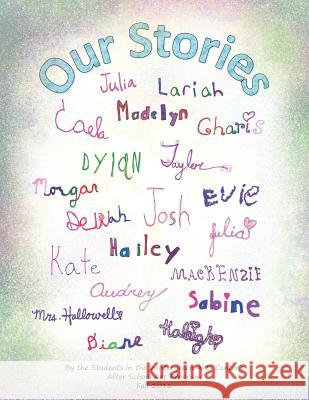 Our Stories
Julia Lariah
Madelyn
Caela Charis
DYlAN Taylor
Morgan EviE
Delilah Josh Julia
Hailey
Kate MacKENZIE
Audrey
Sabine
Mrs. Hallowell
Haleigh
Diane
By the Students in the
After School Art Program
Fall 2016